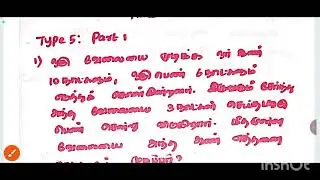 Type 5: Part 1
1) ஒரு வேலையை முடிக்க ஓர் ஆண்
10 நாட்களும், ஒரு பெண் 6 நாட்களும்
எடுத்துக் கொள்கின்றனர். இருவரும் சேர்ந்து
அந்த வேலையை 3 நாட்கள் செய்தபிறகு
பெண் சென்று விடுகிறார். மீதமுள்ள
வேலையை அந்த ஆண் எத்தனை
முடிப்பார்?
InShot